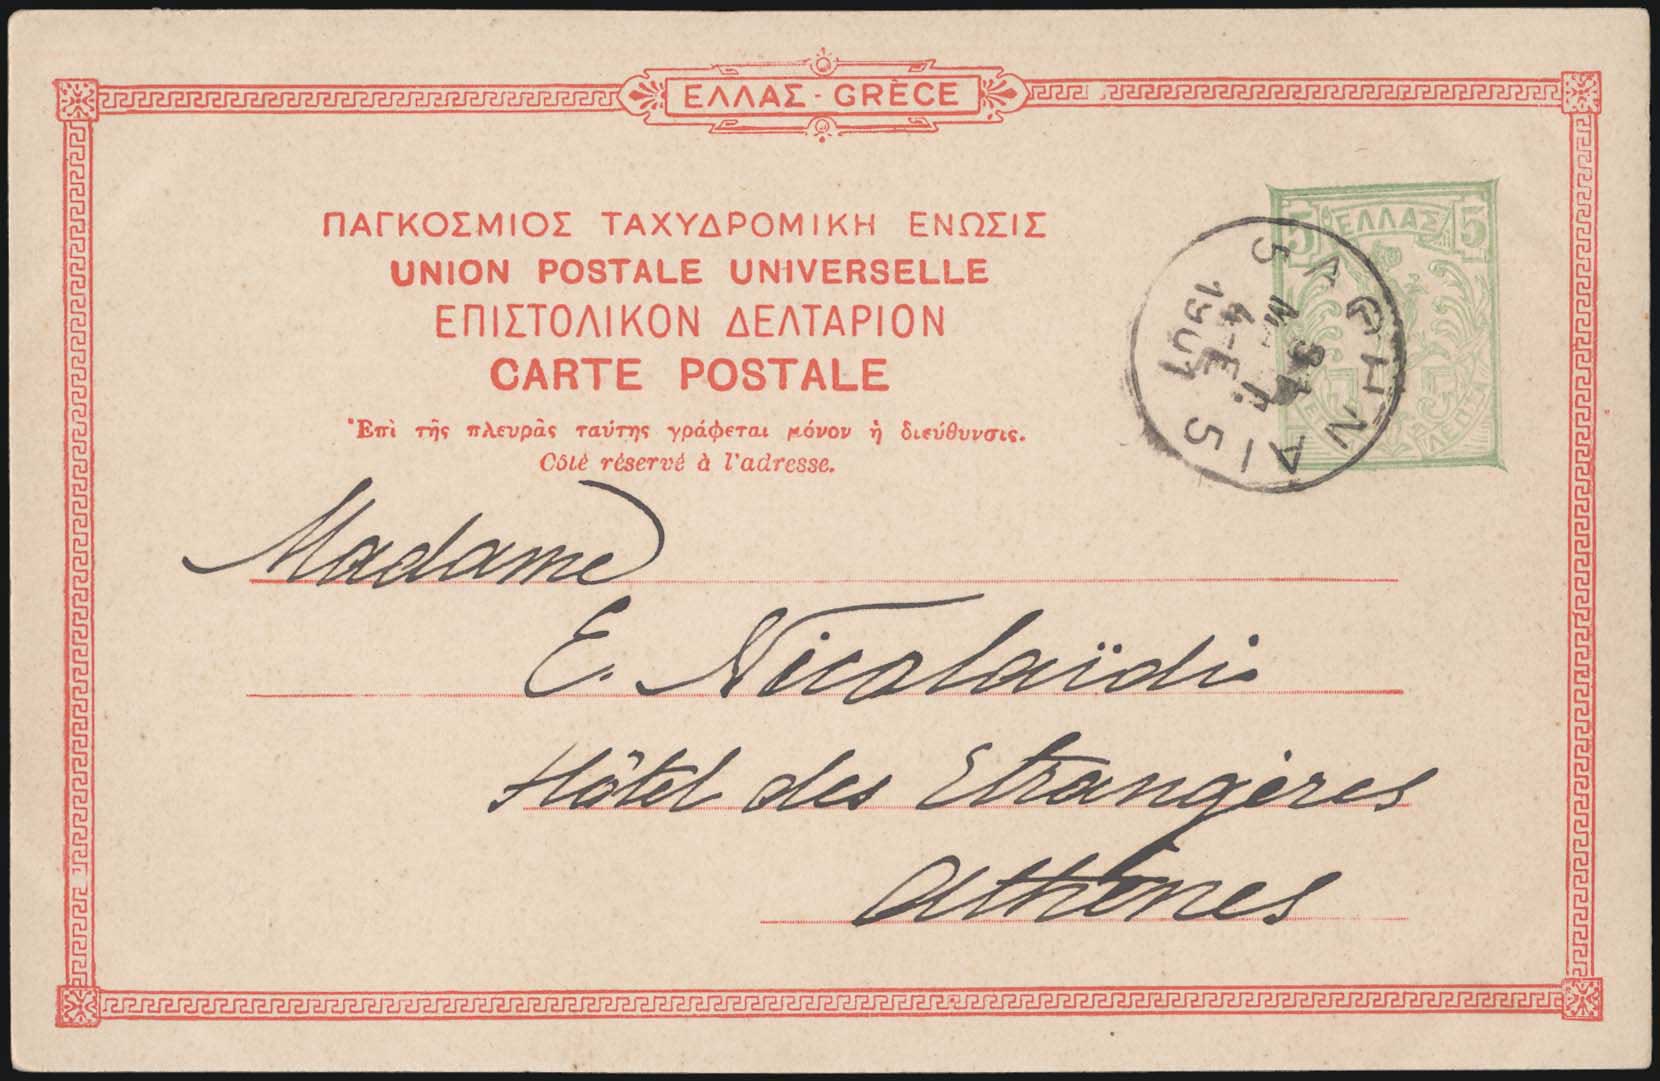 ΕΛΛΑΣ - GRÈCE
ΠΑΓΚΟΣΜΙΟΣ ΤΑΧΥΔΡΟΜΙΚΗ ΕΝΩΣΙΣ
UNION POSTALE UNIVERSELLE
ΕΠΙΣΤΟΛΙΚΟΝ ΔΕΛΤΑΡΙΟΝ
CARTE POSTALE
Ἐπὶ τῆς πλευρᾶς ταύτης γράφεται μόνον ἡ διεύθυνσις.
Côté réservé à l'adresse.
5 ΕΛΛΑΣ 5
ΑΘΗΝΑΙ 5
1901
Madame
E. Nicolaïdi
Hôtel des Etrangères
Athènes